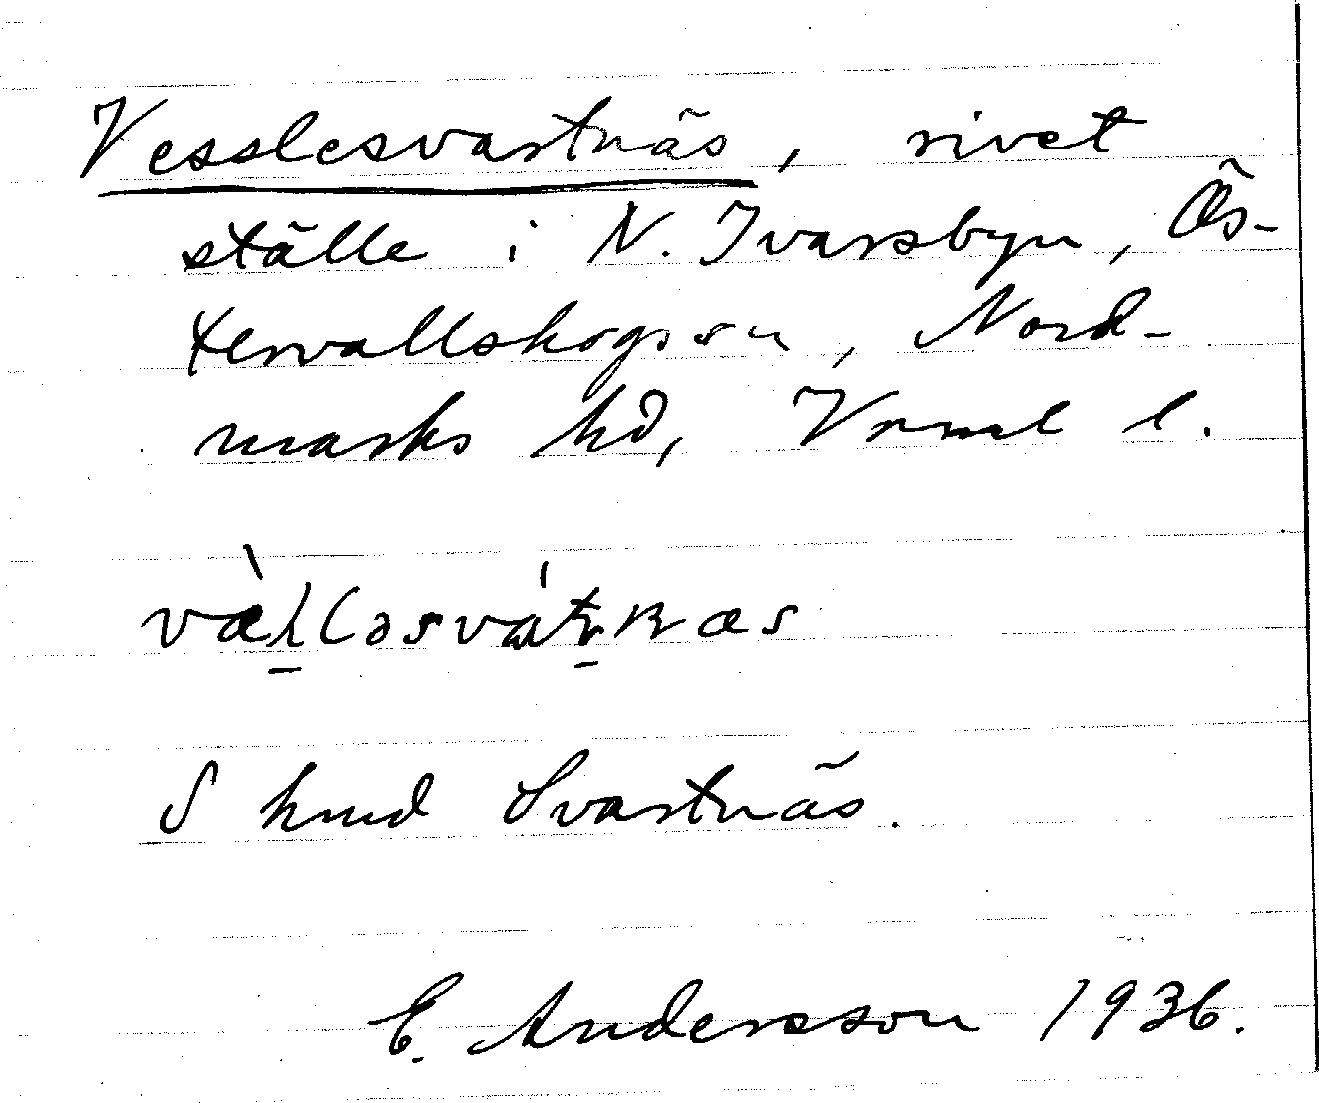 Vesslesvartnäs, rivet
ställe i N. Ivarsbyn, Ös-
tervallskogs sn, Nord-
marks hd, Vrml l.
S hmd Svartnäs.
E. Andersson 1936.